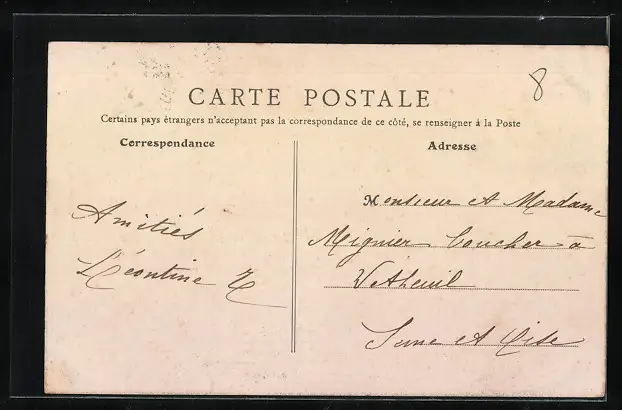 8
CARTE POSTALE
Certains pays étrangers n'acceptant pas la correspondance de ce côté, se renseigner à la Poste
Correspondance
Adresse
Amitiés
Léontine
Monsieur et Madame
Mignier Boucher à
Vétheuil
Seine et Oise